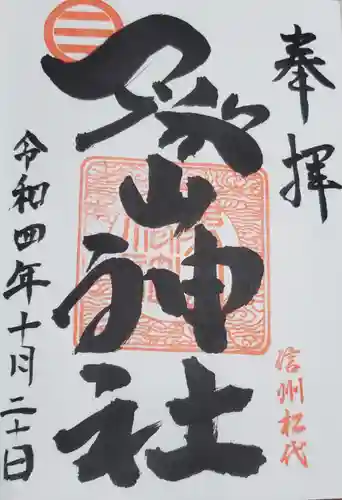 奉拝
信州松代
山神社
令和四年十月二十日